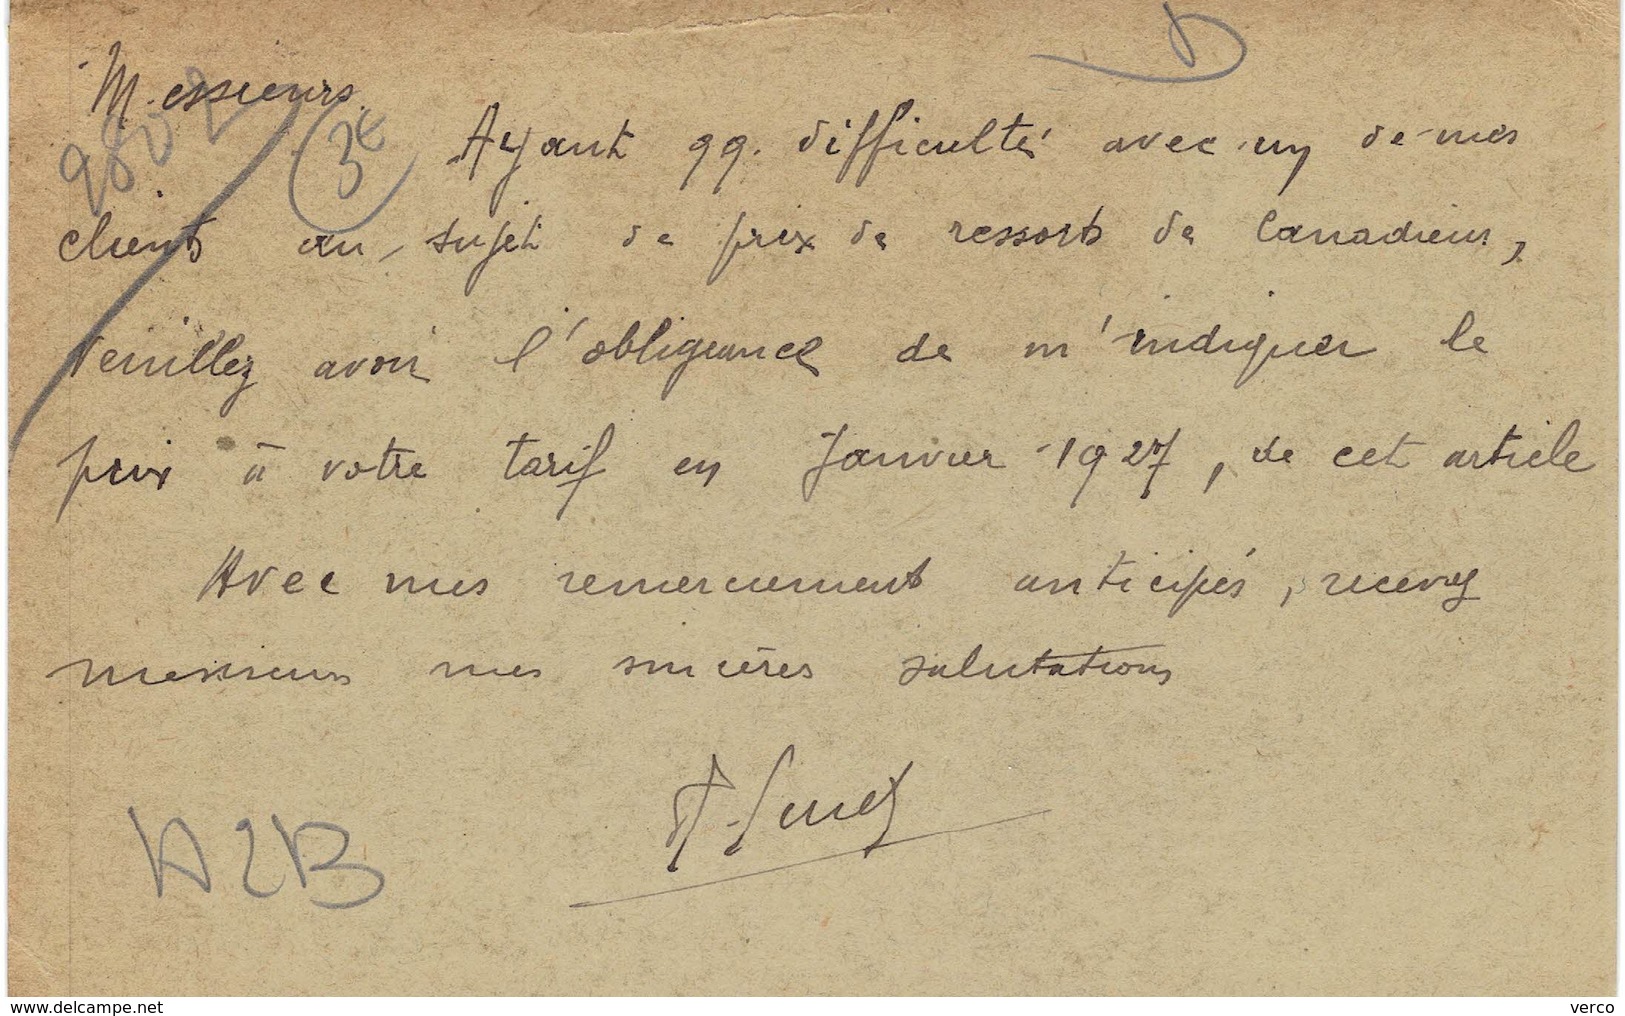 Messieurs
3e
Ayant qq. difficulté avec un de mes
clients au sujet de prix de ressorts de Canadiens,
Veuillez avoir l'obligeance de m'indiquer le
prix à votre tarif en Janvier 1927, de cet article
Avec mes remerciements anticipés, recevez
messieurs mes sincères salutations
A2B
www.delcampe.net
verco